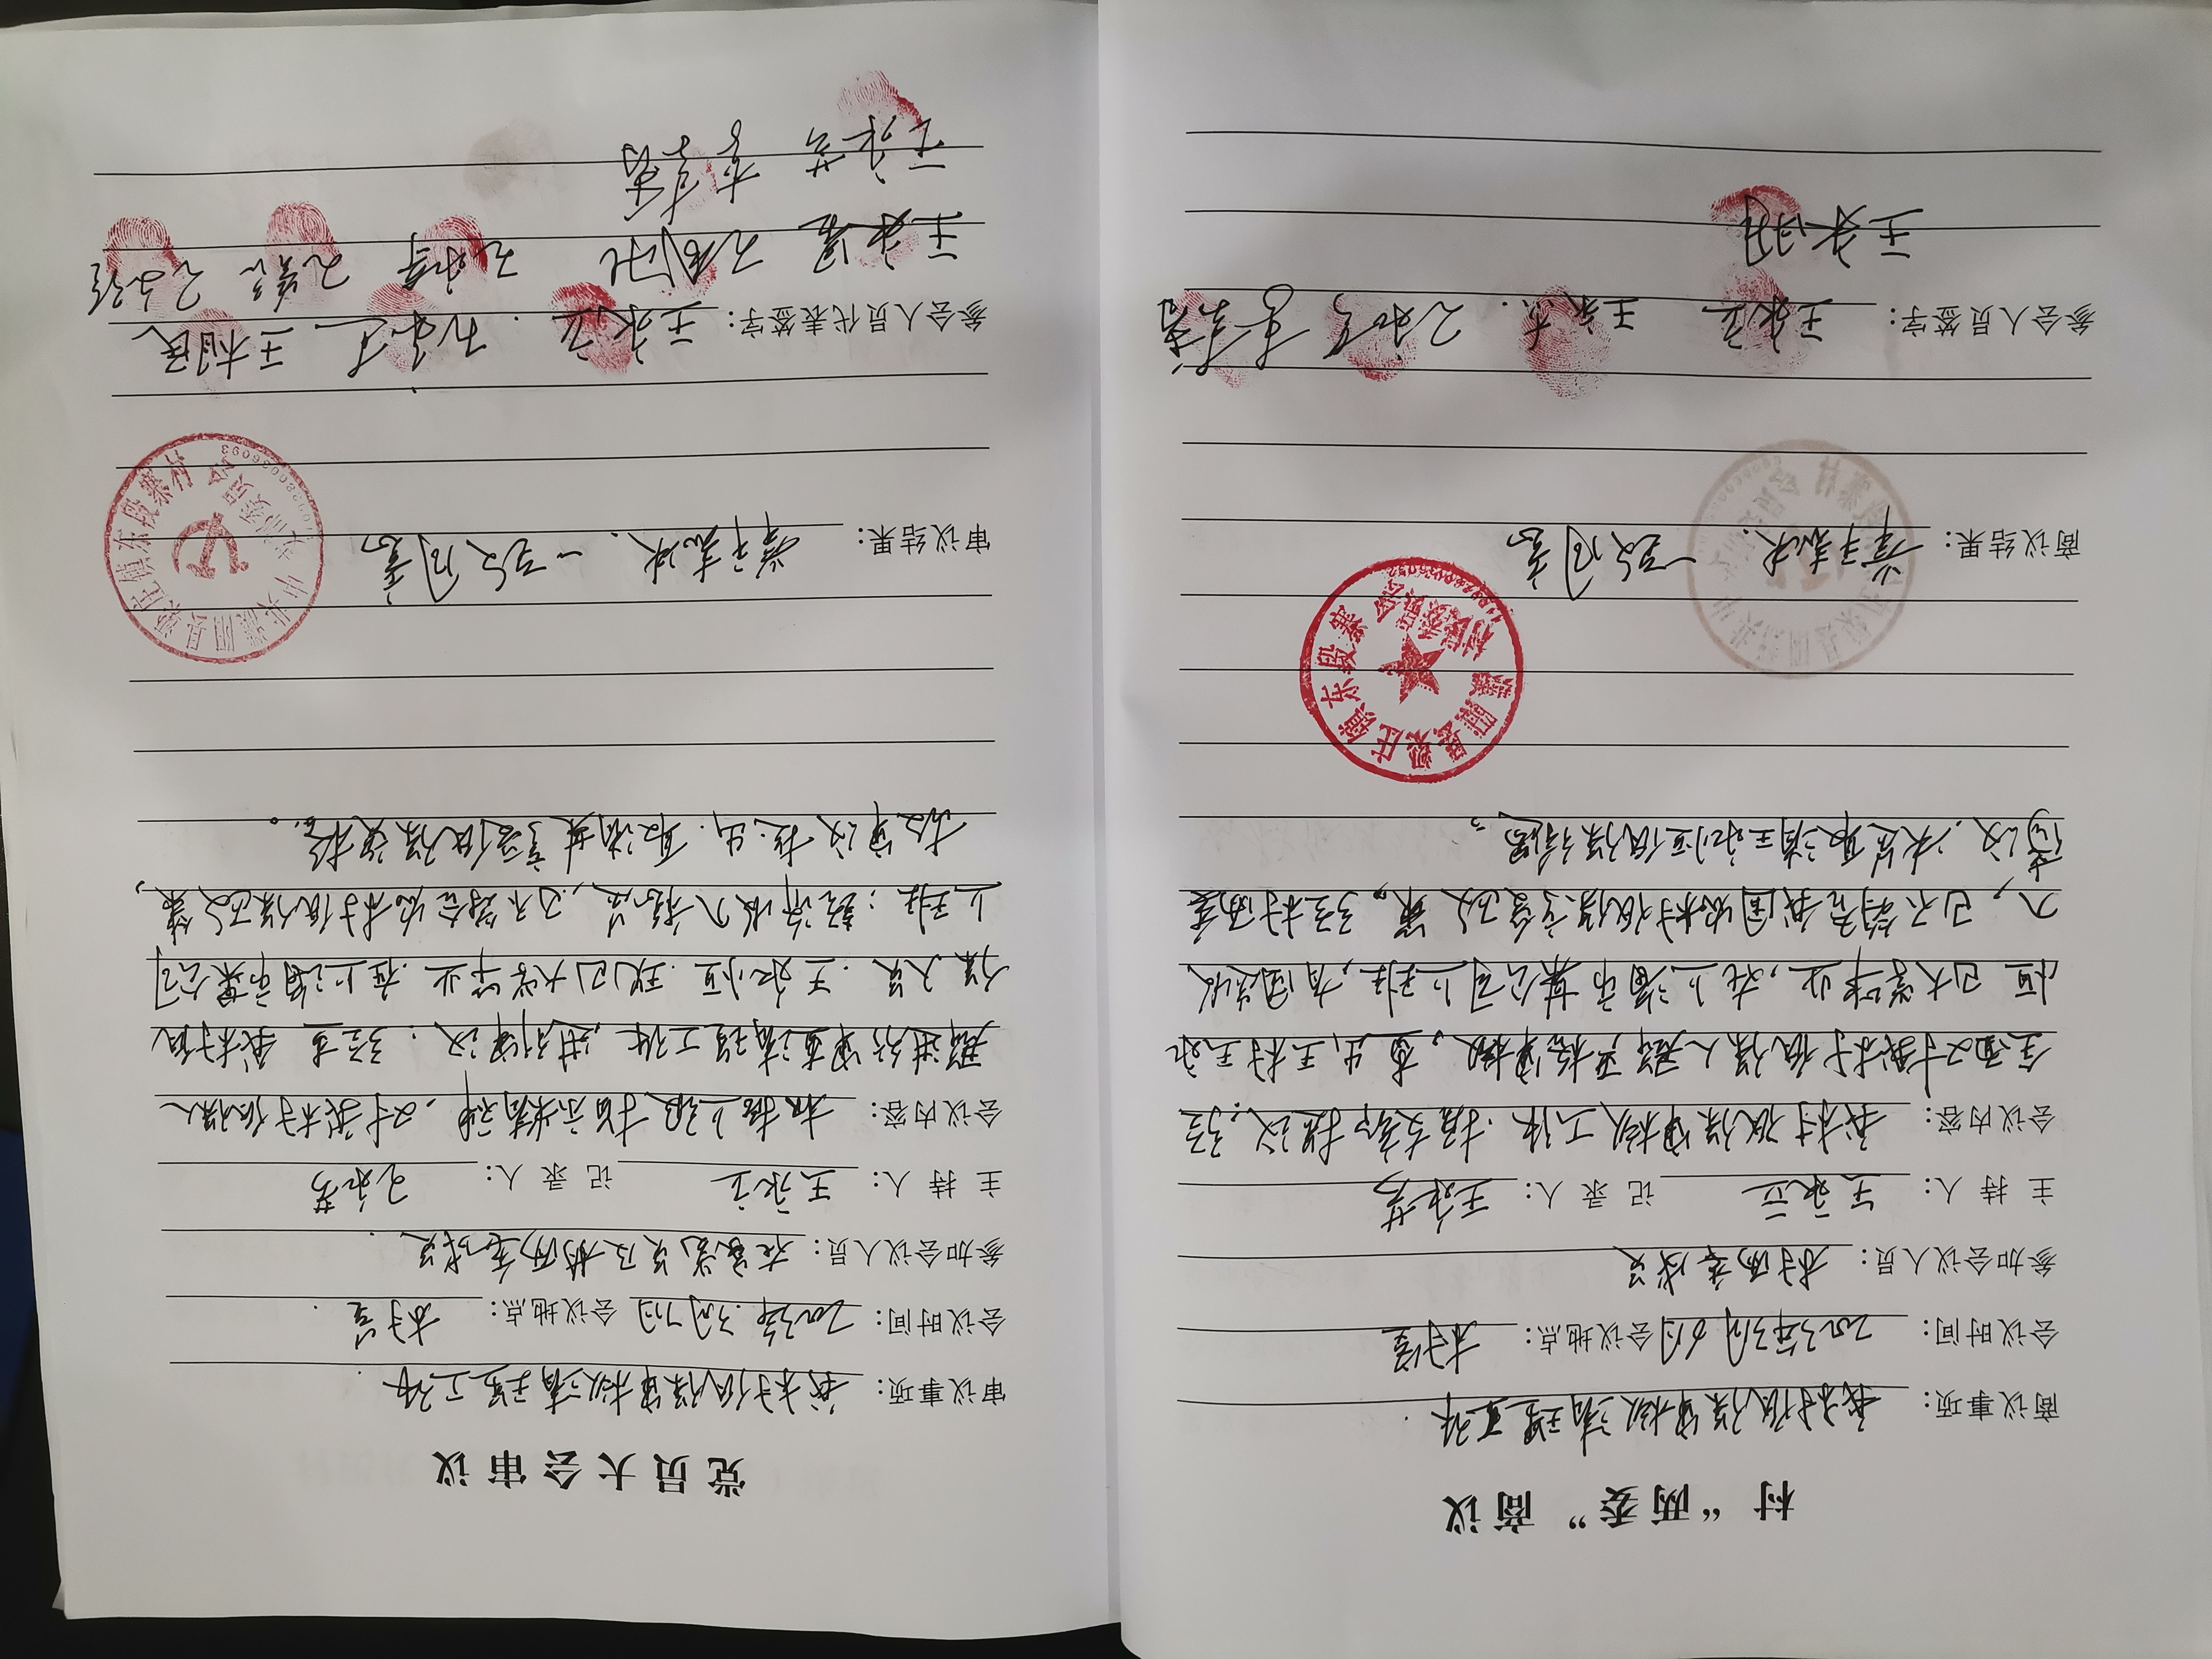 村“两委”商议
商议事项: 我村低保审核清理工作.
会议时间: 2023年3月6日 会议地点: 村室
参加会议人员: 村两委成员
主持人: 王永立 记录人: 王永芳
会议内容: 我村低保审核工作.据支部提议,经
全面对我村低保人群严格审核。查出王村王永
恒已大学毕业,在上海市某公司上班,有固定收
入,已不符合我国农村低保享受政策。经村两委
商议.决定取消王永恒低保待遇。
濮阳县梁庄镇东段寨
村民委员会
商议结果: 举手表决.一致同意
参会人员签字: 王永立 王永杰. 王永芳 李素香
王永明
党员大会审议
审议事项: 我村低保审核清理工作.
会议时间: 2023年.3月7日 会议地点: 村室.
参加会议人员: 在家党员及村两委成员.
主持人: 王永立 记录人: 王永芳
会议内容: 根据上级指示精神,对我村低保人
群进行审查清理工作,进行审议:经查 我村低
保人员.王永恒.现已大学毕业.在上海市某公司
上班;经济收入稳定,已不符合农村低保政策,
故审议提出.取消其享受低保资格。
中共濮阳县梁庄镇东段寨村
支部委员会
审议结果: 举手表决.一致同意
参会人员代表签字: 王永立. 王相民
王永芳 李素香